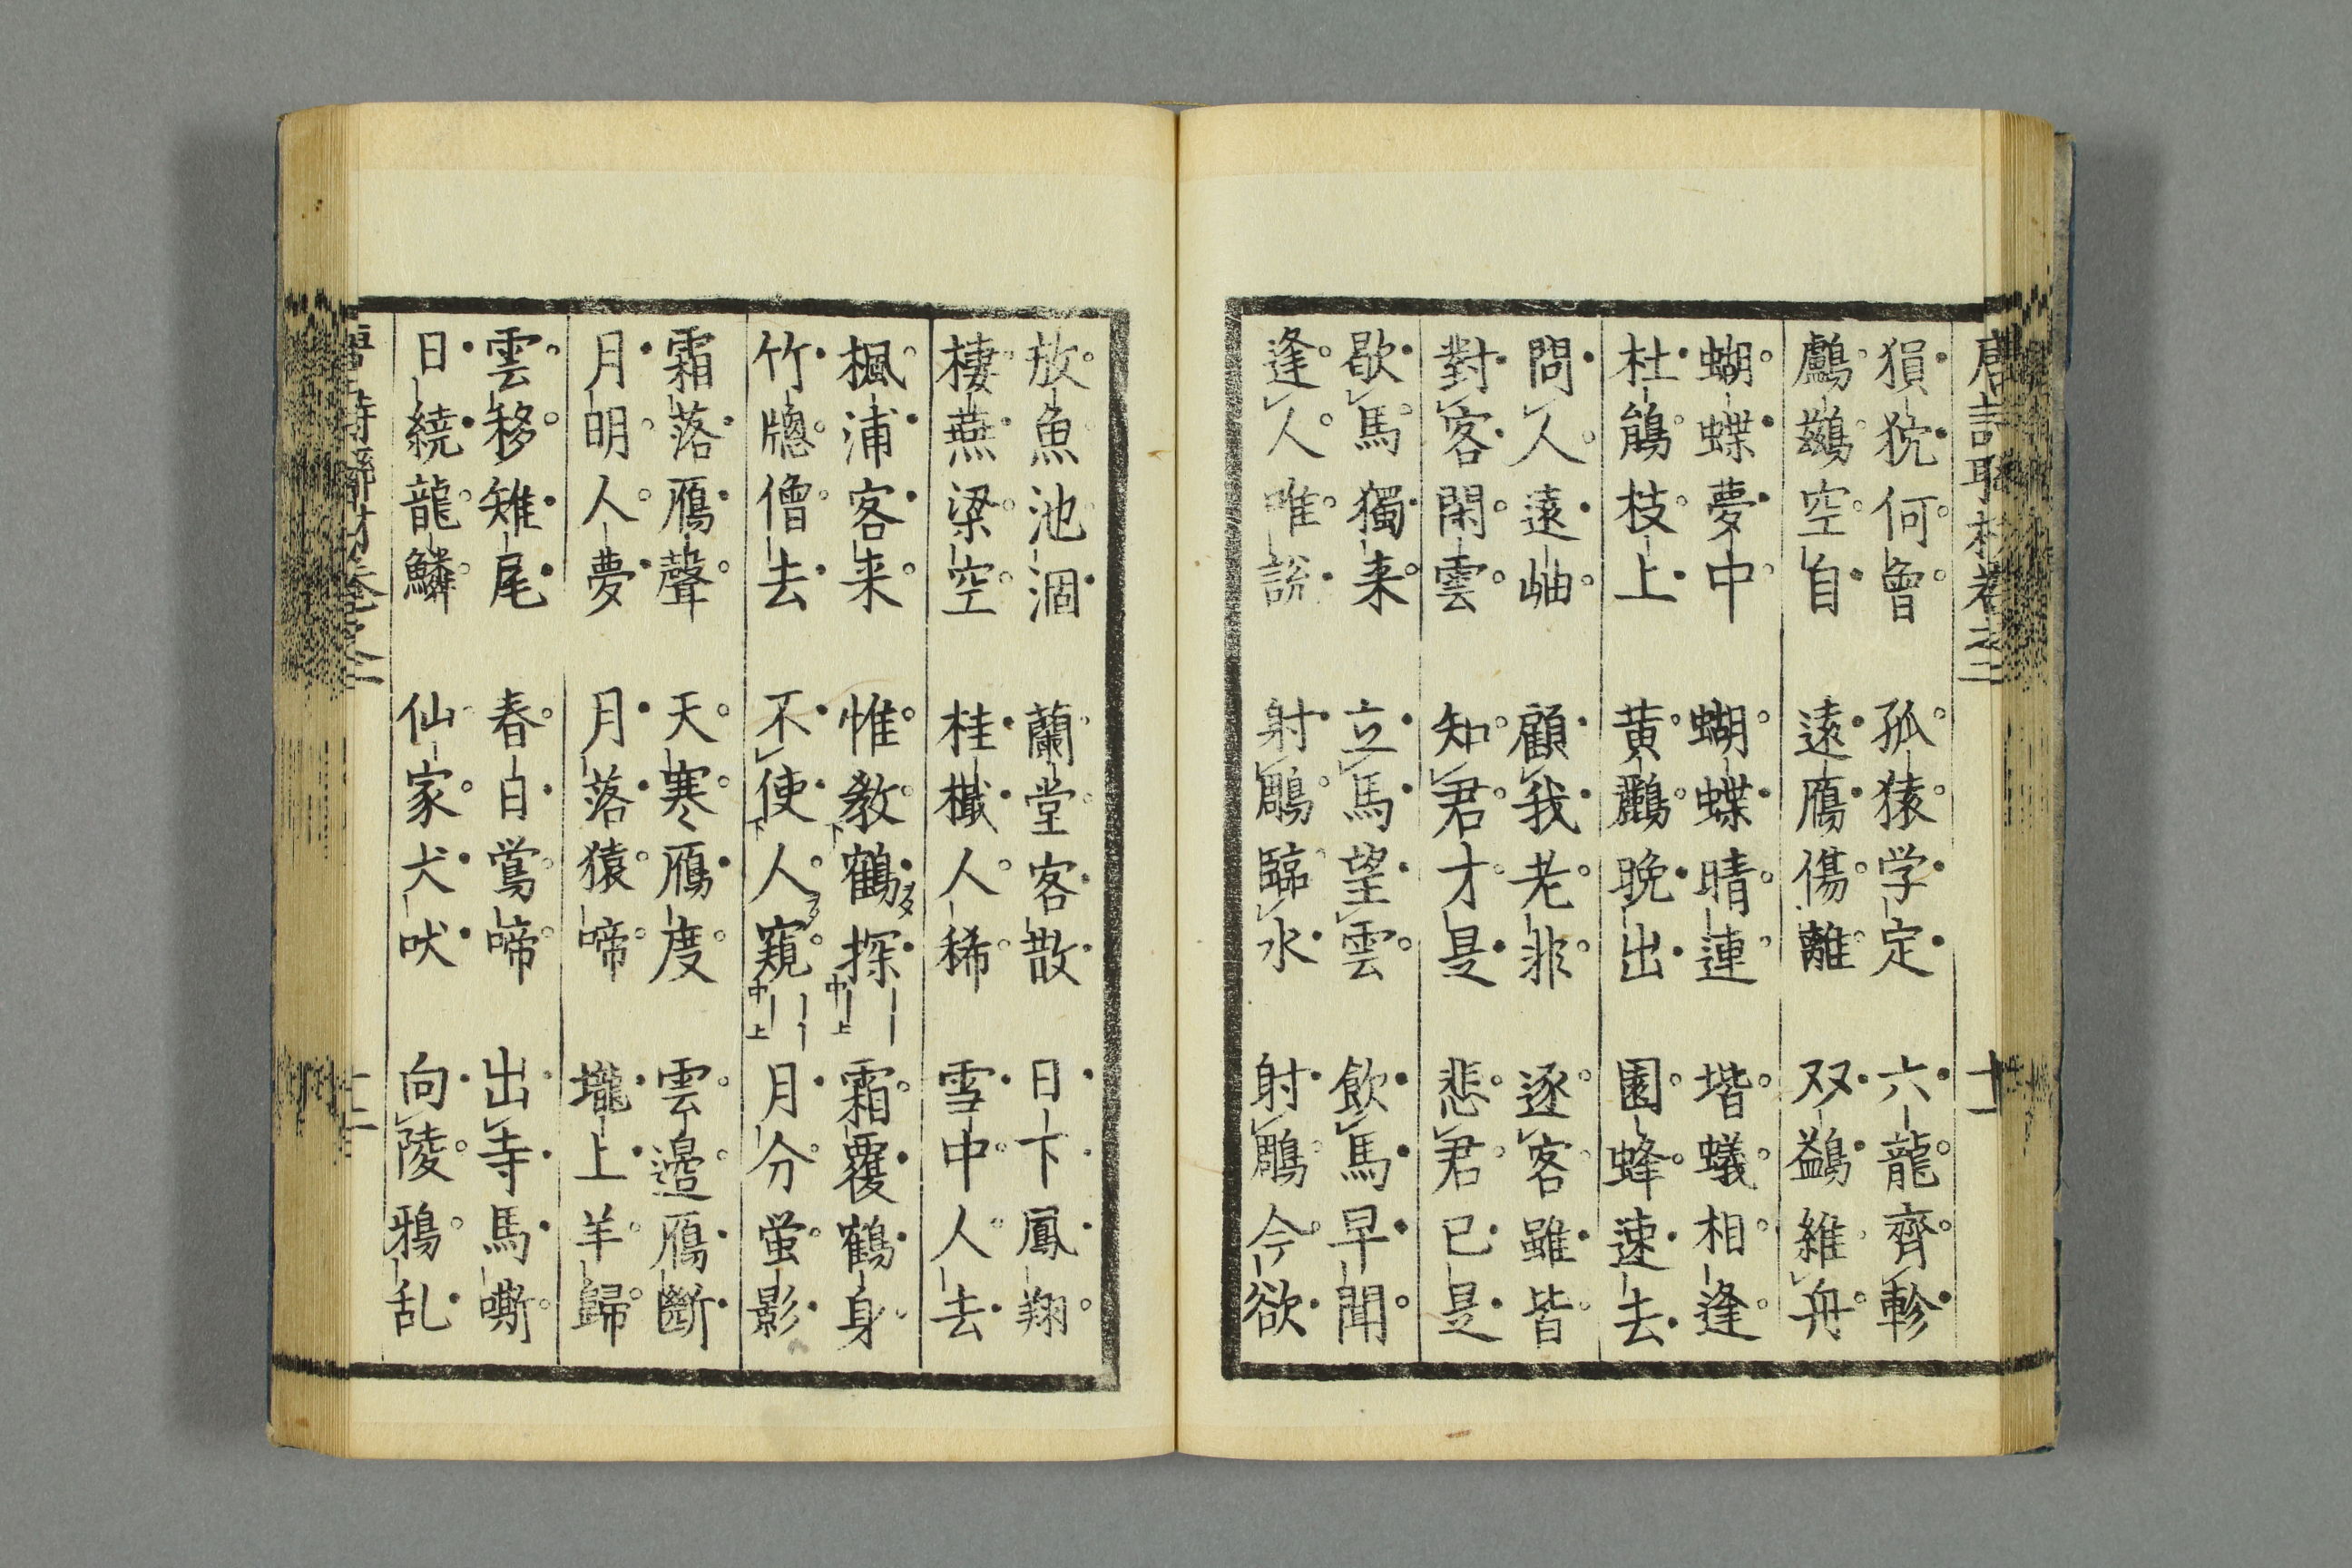 唐詩聯材卷之二　十一
何曾　孤猿学定　六龍齊軫
鸕鷀空自　遠鴈傷離　双鷁維舟
蝴蝶夢中　蝴蝶晴連　堦蟻相逢
杜鵑枝上　黄鸝晩出　園蜂速去
問人遠岫　顧我老非　逐客雖皆
對客閑雲　知君才是　悲君已是
歇馬獨来　立馬望雲　飲馬早聞
逢人唯説　射鵰臨水　射鵰今欲
放魚池涸　蘭堂客散　日卞鳳翔
棲燕梁空　桂檝人稀　雪中人去
楓浦客来　惟教下鶴ヲ探中｜上　霜覆鶴身
竹牕僧去　不使下人ヲ窺中｜上　月分蛍影
霜落鴈聲　天寒鴈度　雲邉鴈斷
月明人夢　月落猿啼　壠上羊歸
雲移雉尾　春白鴬啼　出寺馬嘶
日繞龍鱗　仙家犬吠　向陵鴉乱
唐詩聯材卷之二　十二